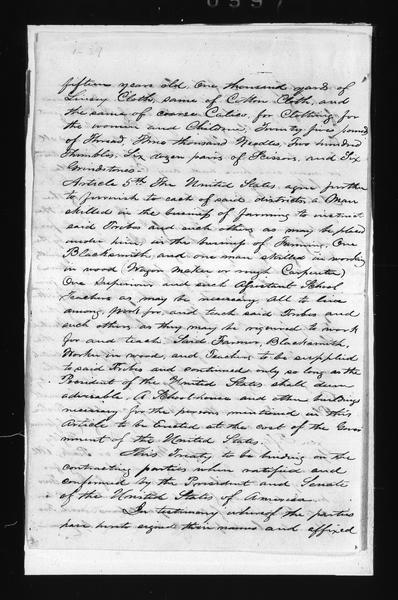 fifteen years old, One thousand yards of
Linsey Cloth, same of Cotton Cloth, and
the same of coarse Calico, for Clothing for
the women and Children, Twenty five pounds
of Thread, Three thousand Needles, Two hundred
Thimbles, Six dozen pairs of Scissors, and Six
Grindstones.
Article 5th The United States, agree further
to furnish to each of said districts, a Man
skilled in the business of farming to instruct
said Tribes and such others as may be placed
under him, in the business of Farming, One
Blacksmith, and one man skilled in working
in wood (Wagon Maker or rough Carpenter)
One Superior and such Assistant School
Teachers as may be necessary, All to live
among, work for, and teach said Tribes and
such others as they may be required to work
for and teach. Said Farmer, Blacksmith,
Worker in wood, and Teachers to be supplied
to said Tribes and continued only so long as the
President of the United States shall deem
advisable. A School-house and other buildings
necessary for the persons mentioned in this
Article to be Erected at the cost of the Govern
ment of the United States.
This Treaty to be binding on the
contracting parties when ratified and
confirmed by the President and Senate
of the United States of America.
In testimony whereof the parties
have hereto signed their names and affixed